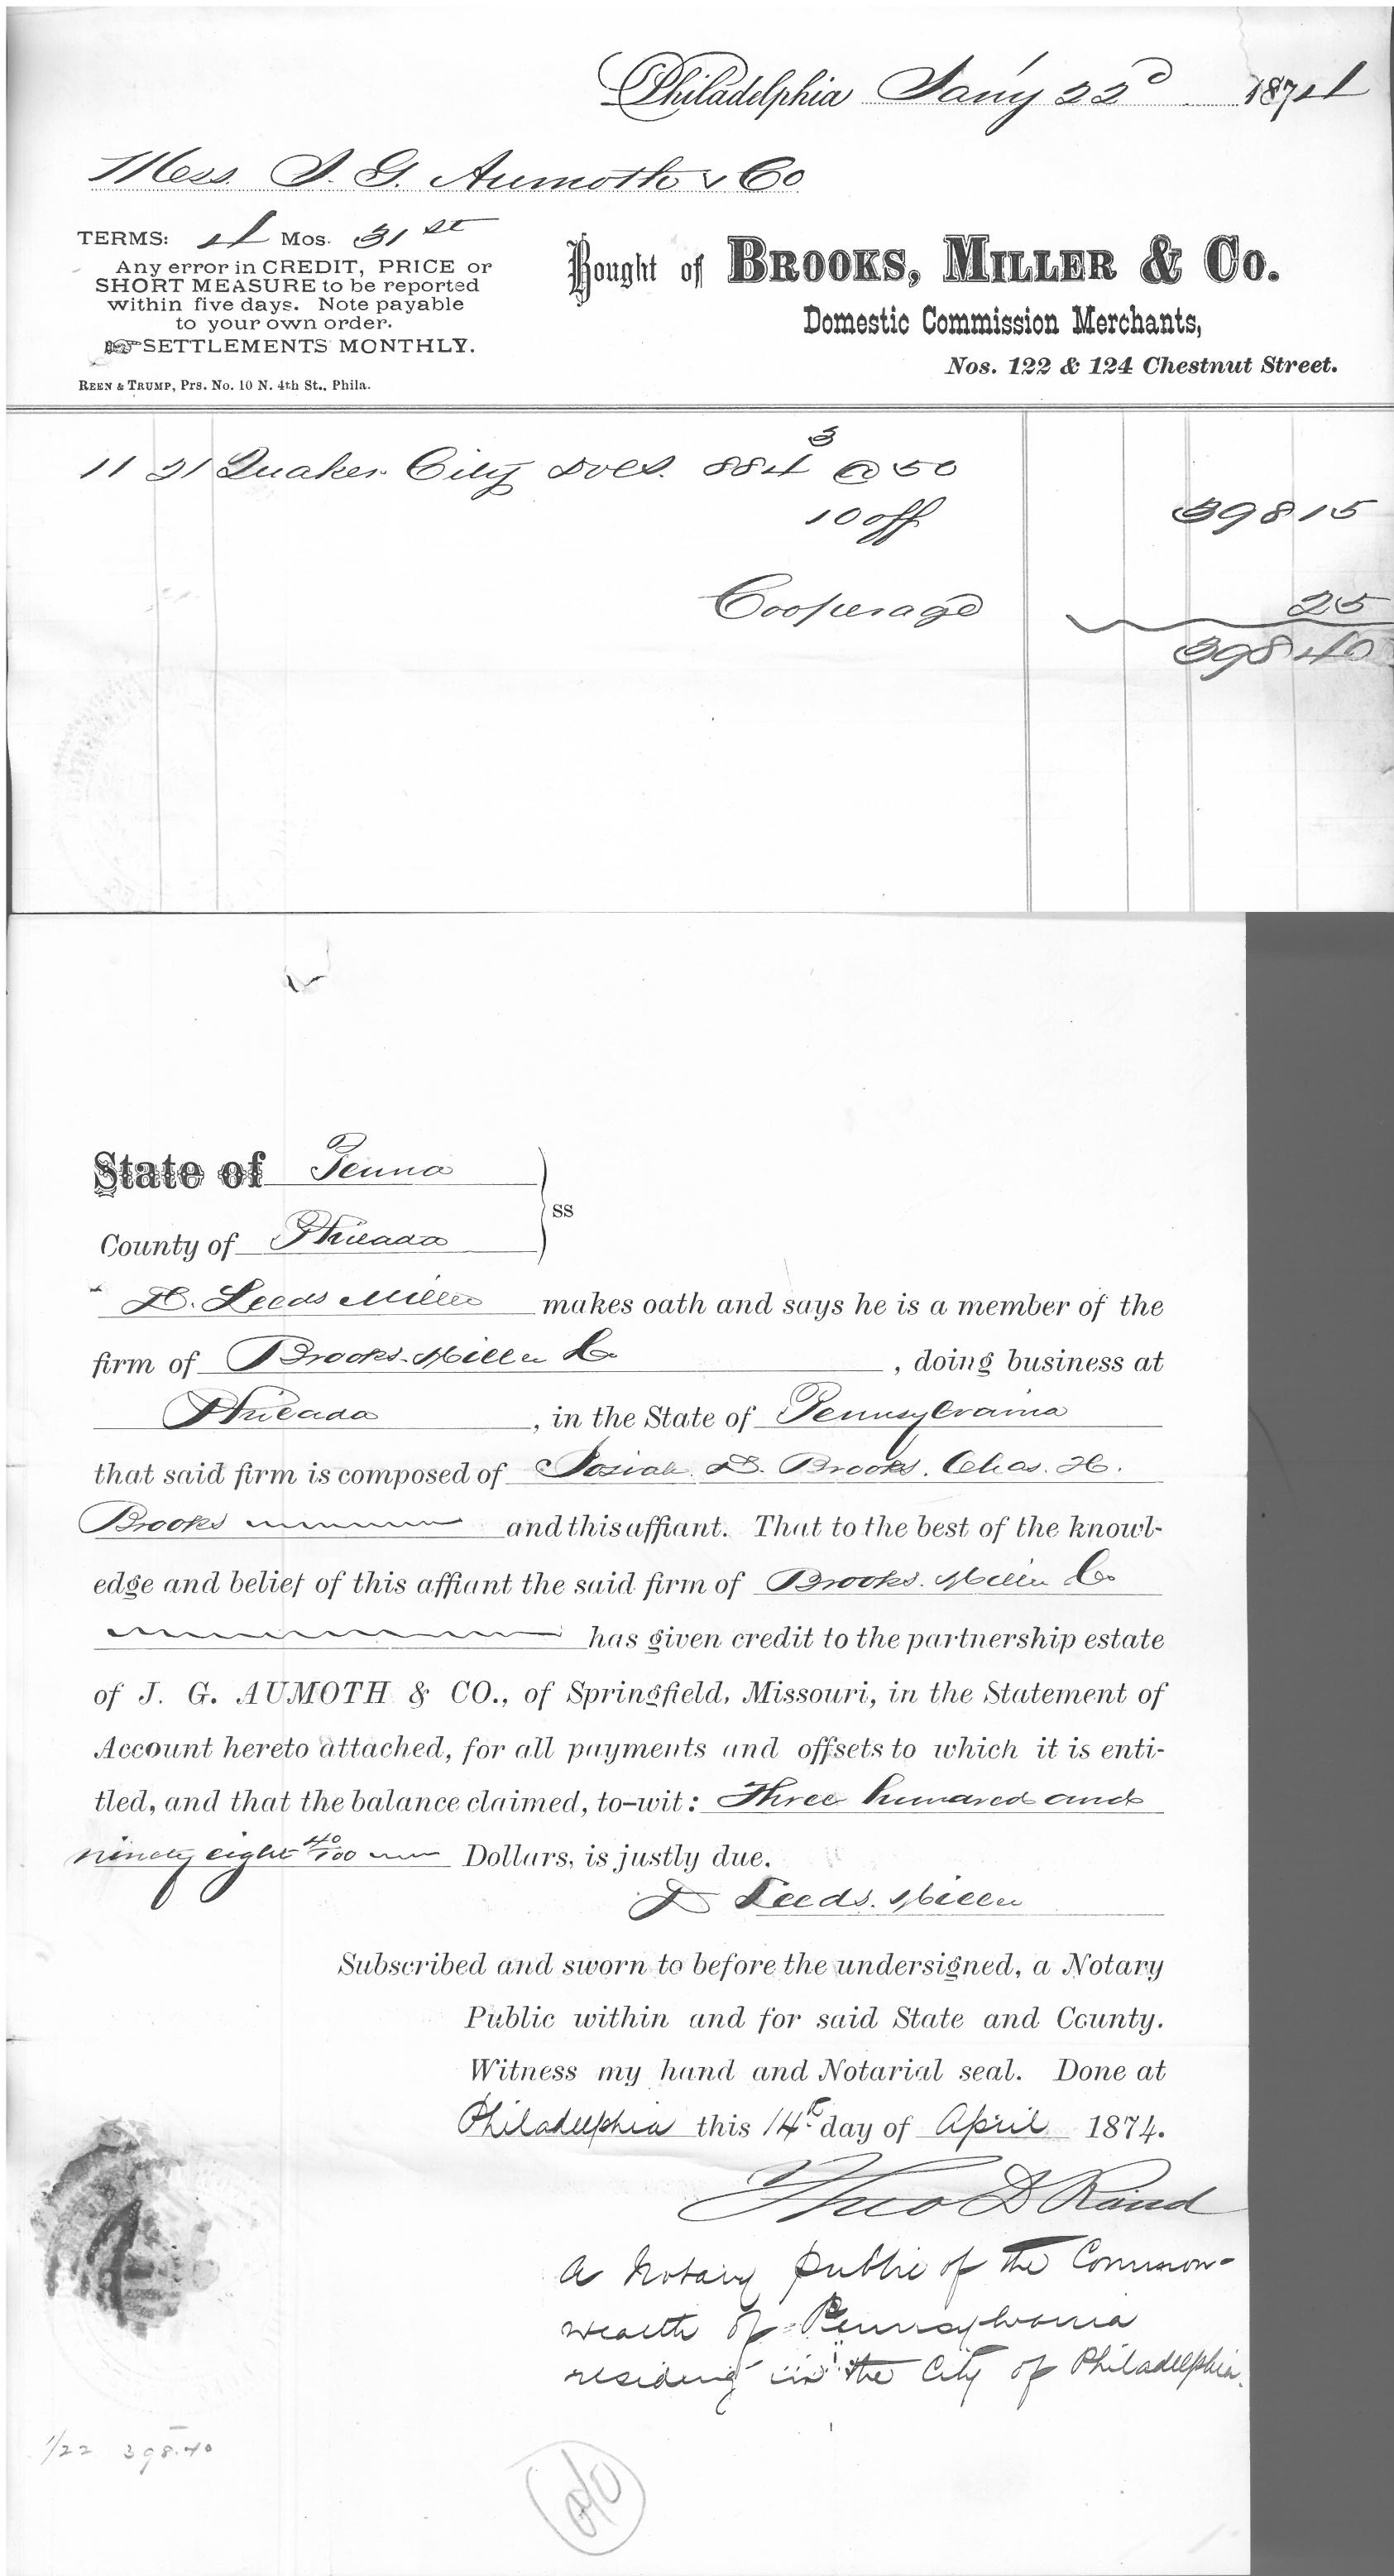 Philadelphia Jany 22d 1874
Mess. J. G. Aumoth & Co
TERMS: 4 Mos. 31st
Any error in CREDIT, PRICE or
SHORT MEASURE to be reported
within five days. Note payable
to your own order.
SETTLEMENTS MONTHLY.
REEN & TRUMP, Prs. No. 10 N. 4th St., Phila.
Bought of BROOKS, MILLER & Co.
Domestic Commission Merchants,
Nos. 122 & 124 Chestnut Street.
11 21 Quaker City 884 3 @ 50
10 off 398 15
Cooperage 25
398 40
State of Penna
County of Philada
ss
D. Leeds Miller makes oath and says he is a member of the
firm of Brooks. Miller & Co, doing business at
Philada, in the State of Pennsylvania
that said firm is composed of Josiah D. Brooks. Chas. H.
Brooks and this affiant. That to the best of the knowl-
edge and belief of this affiant the said firm of Brooks. Miller & Co
has given credit to the partnership estate
of J. G. AUMOTH & CO., of Springfield, Missouri, in the Statement of
Account hereto attached, for all payments and offsets to which it is enti-
tled, and that the balance claimed, to-wit: Three hundred and
ninety eight 40/100 Dollars, is justly due.
D Leeds. Miller
Subscribed and sworn to before the undersigned, a Notary
Public within and for said State and County.
Witness my hand and Notarial seal. Done at
Philadelphia this 14th day of April 1874.
Theo D Rand
A Notary public of the Common-
wealth of Pennsylvania
residing in the City of Philadelphia.
1/22 398.40